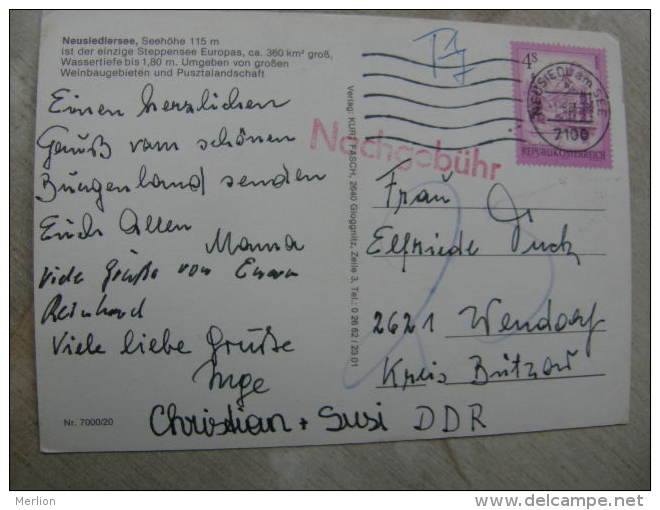 Neusiedlersee, Seehöhe 115 m
ist der einzige Steppensee Europas, ca. 360 km² groß,
Wassertiefe bis 1,80 m. Umgeben von großen
Weinbaugebieten und Pusztalandschaft
Einen herzlichen
Gruß vom schönen
Burgenland senden
Euch Allen
Mama
viele Grüße von Eurem
Reinhard
Viele liebe Grüße
Inge
Christian + Susi
Nr. 7000/20
Verlag: KURT FASCH, 2640 Gloggnitz, Zeile 3, Tel.: 0 26 62 / 23 01
T
4S
NEUSIEDL am SEE
7100
REPUBLIK ÖSTERREICH
Nachgebühr
Frau
Elfriede Puck
2621 Wendorf
Kreis Bützow
DDR
Merlion
www.delcampe.net